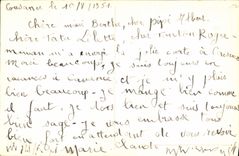 Cusance le 10/8/1951
Chère mémé Berthe, cher pépé Albert,
chère tatie Lilette, cher tonton Roger
maman m'a envoyé la jolie carte à
Merci beaucoup, je suis toujours en
vacances à Cusance et je m'y plais
bien beaucoup. Je mange bien comme
il faut, je dors bien et suis toujours
bien sage. Je vous embrasse tous
bien fort en attendant de vous revoir
Marie Claude